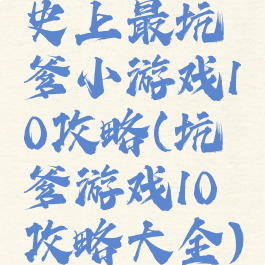 史上最坑
爹小游戏1
0攻略(坑
爹游戏10
攻略大全)